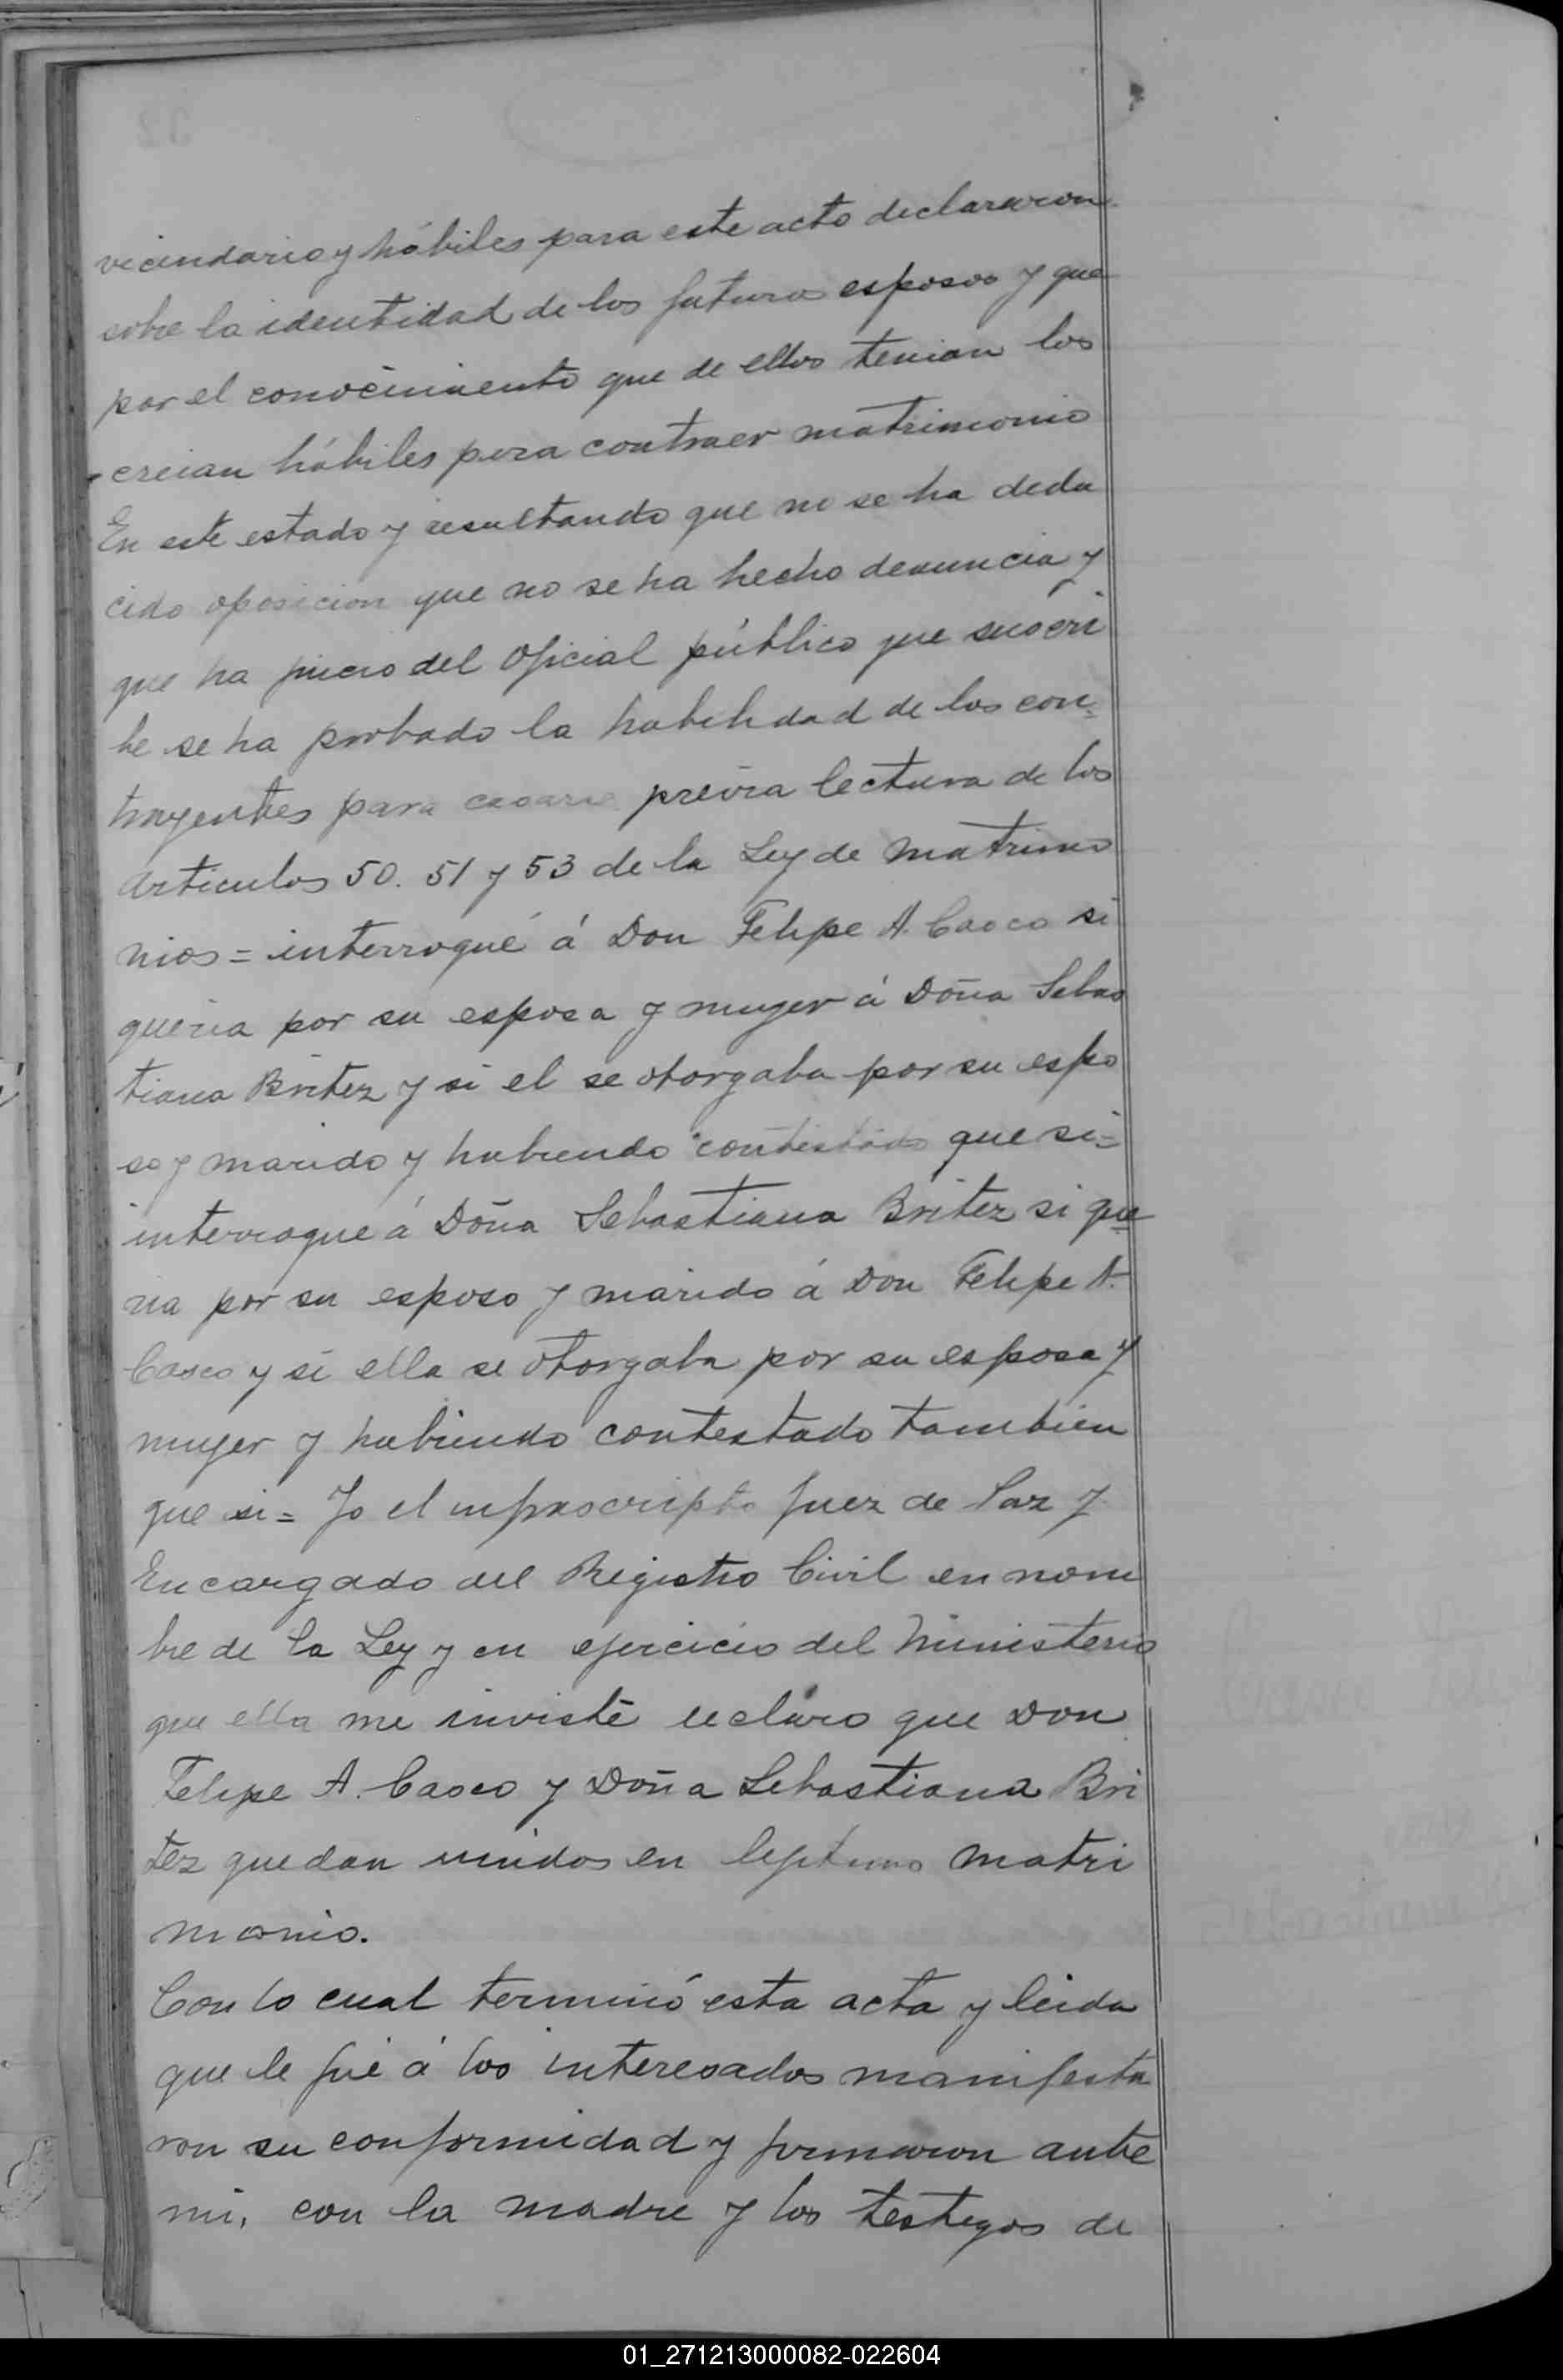 vecindario y hábiles para este acto declararon
sobre la identidad de los futuros esposos y que
por el conocimiento que de ellos tenian los
creian hábiles para contraer matrimonio
En este estado y resultando que no se ha dedu
cido oposicion que no se ha hecho denuncia y
que ha juicio del Oficial público que suscri
be se ha probado la habilidad de los con=
trayentes para casarse previa lectura de los
Articulos 50. 51 y 53 de la Ley de Matrimo
nios = interrogué á Don Felipe A. Casco si
queria por su esposa y muger á Doña Sebas
tiana Britez y si el se otorgaba por su espo
so y marido y habiendo contestado que si=
interrogue á Doña Sebastiana Britez si que
ria por su esposo y marido á Don Felipe A.
Casco y si ella se otorgaba por su esposa y
muger y habiendo contestado tambien
que si = Yo el infrascripto Juez de Paz y
Encargado del Registro Civil en nom
bre de la Ley y en ejercicio del Ministerio
que ella me inviste declaro que Don
Felipe A. Casco y Doña Sebastiana Bri
tez quedan unidos en legitimo matri
monio.
Con lo cual terminó esta acta y leida
que le fué á los interesados manifesta
ron su conformidad y firmaron ante
mi, con la madre y los testigos de
01_271213000082-022604